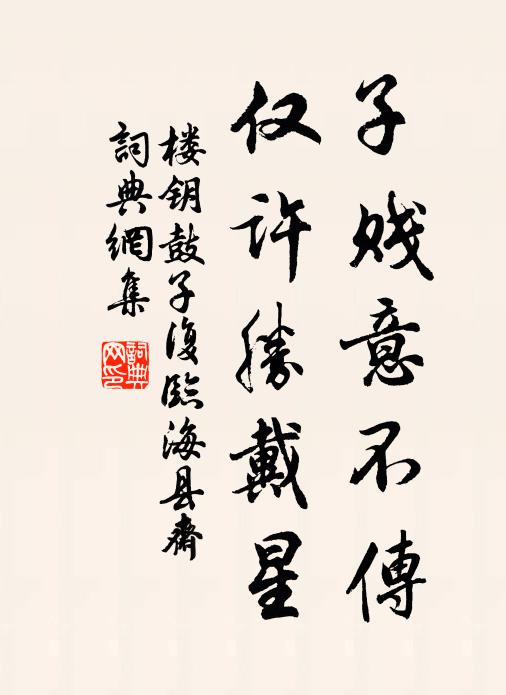 子贱意不傳
仅許勝戴星
楼钥鼓子復臨海县齋
詞典網集
詞典
网印